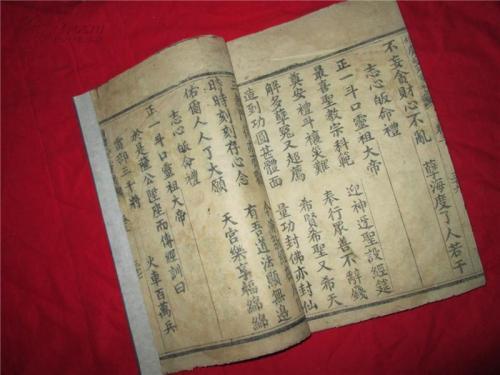 不妄貪財心不亂　孽海度了人若干
志心皈命禮
正一斗口靈祖大帝
最喜聖教宗科範　迎神近聖設經筵
奠安禮斗禳災難　奉行眾善不辭錢
解名孽冤又超薦　希賢希聖又希天
這到功圓甚體面　量功封佛亦封仙
時時刻刻存心念　有吾道法顯無邊
佑爾人人了大願　天宮樂享福綿綿
志心皈命禮
正一斗口靈祖大帝
於是薩公陞座而傳訓曰
雷部三千將　火車百萬兵